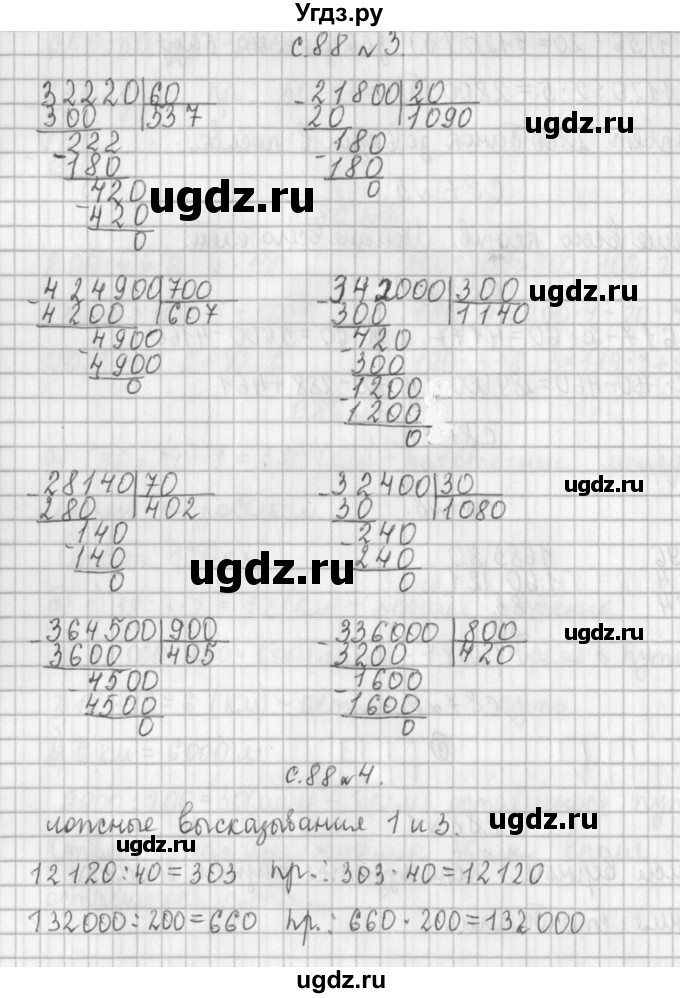 Угдз.ру
с.88 №3
32220 60   21800 20
300 537   20 1090
222   180
180   180
420   0
420
0
ugdz.ru
ugdz.ru
424900 700   342000 300
4200 607   300 1140
4900   420
4900   300
0   1200
1200
0
ugdz.ru
28140 70   32400 30
280 402   30 1080
140   240
140   240
0   0
ugdz.ru
ugdz.ru
364500 900   336000 800
3600 405   3200 420
4500   1600
4500   1600
0   0
ugdz.ru
с.88 №4.
ложные высказывания 1 и 3.
ugdz.ru
ugdz.ru
12120:40=303 пр.: 303·40=12120
132000:200=660 пр.: 660·200=132000
ugdz.ru